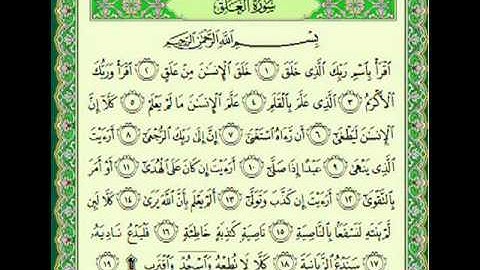 سُورَةُ الْعَلَقِ
بِسْمِ اللَّهِ الرَّحْمَٰنِ الرَّحِيمِ
اقْرَأْ بِاسْمِ رَبِّكَ الَّذِي خَلَقَ ١ خَلَقَ الْإِنسَٰنَ مِنْ عَلَقٍ ٢ اقْرَأْ وَرَبُّكَ
الْأَكْرَمُ ٣ الَّذِي عَلَّمَ بِالْقَلَمِ ٤ عَلَّمَ الْإِنسَٰنَ مَا لَمْ يَعْلَمْ ٥ كَلَّا إِنَّ
الْإِنسَٰنَ لَيَطْغَىٰ ٦ أَن رَّءَاهُ اسْتَغْنَىٰ ٧ إِنَّ إِلَىٰ رَبِّكَ الرُّجْعَىٰ ٨ أَرَءَيْتَ
الَّذِي يَنْهَىٰ ٩ عَبْدًا إِذَا صَلَّىٰ ١٠ أَرَءَيْتَ إِن كَانَ عَلَى الْهُدَىٰ ١١ أَوْ أَمَرَ
بِالتَّقْوَىٰ ١٢ أَرَءَيْتَ إِن كَذَّبَ وَتَوَلَّىٰ ١٣ أَلَمْ يَعْلَم بِأَنَّ اللَّهَ يَرَىٰ ١٤ كَلَّا لَئِن
لَّمْ يَنتَهِ لَنَسْفَعًا بِالنَّاصِيَةِ ١٥ نَاصِيَةٍ كَٰذِبَةٍ خَاطِئَةٍ ١٦ فَلْيَدْعُ نَادِيَهُ
١٧ سَنَدْعُ الزَّبَانِيَةَ ١٨ كَلَّا لَا تُطِعْهُ وَاسْجُدْ وَاقْتَرِب ١٩